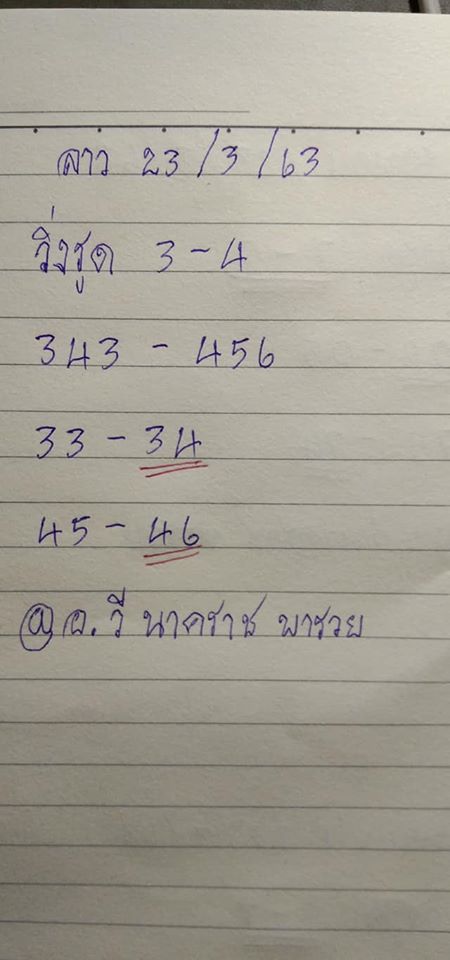 ลาว 23/3/63
วิ่งชูด 3-4
343 - 456
33 - 34
45 - 46
@อ.วี นาคราช พารวย